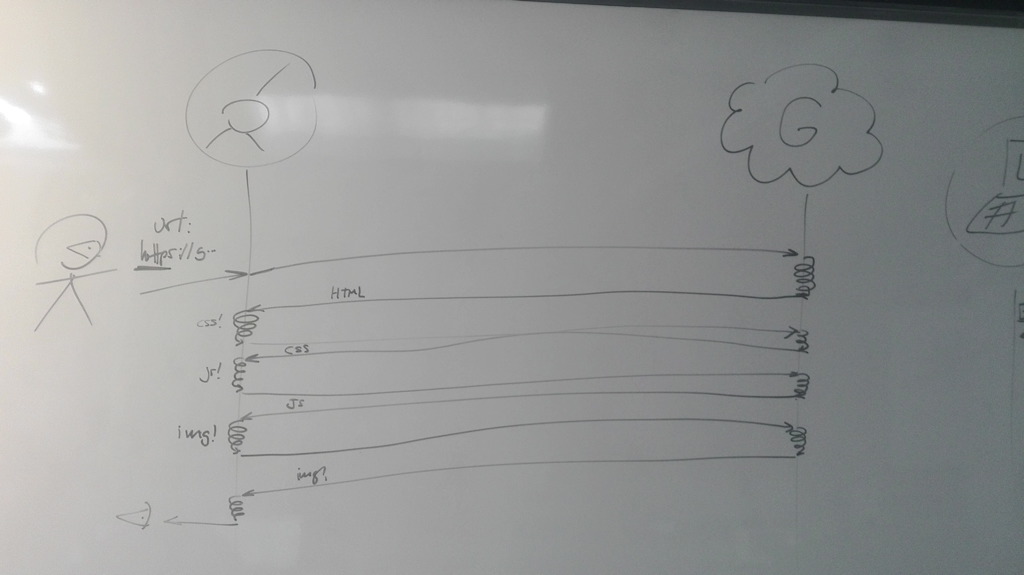 G
url:
https://s...
HTML
css!
css
js!
JS
img!
img!
#